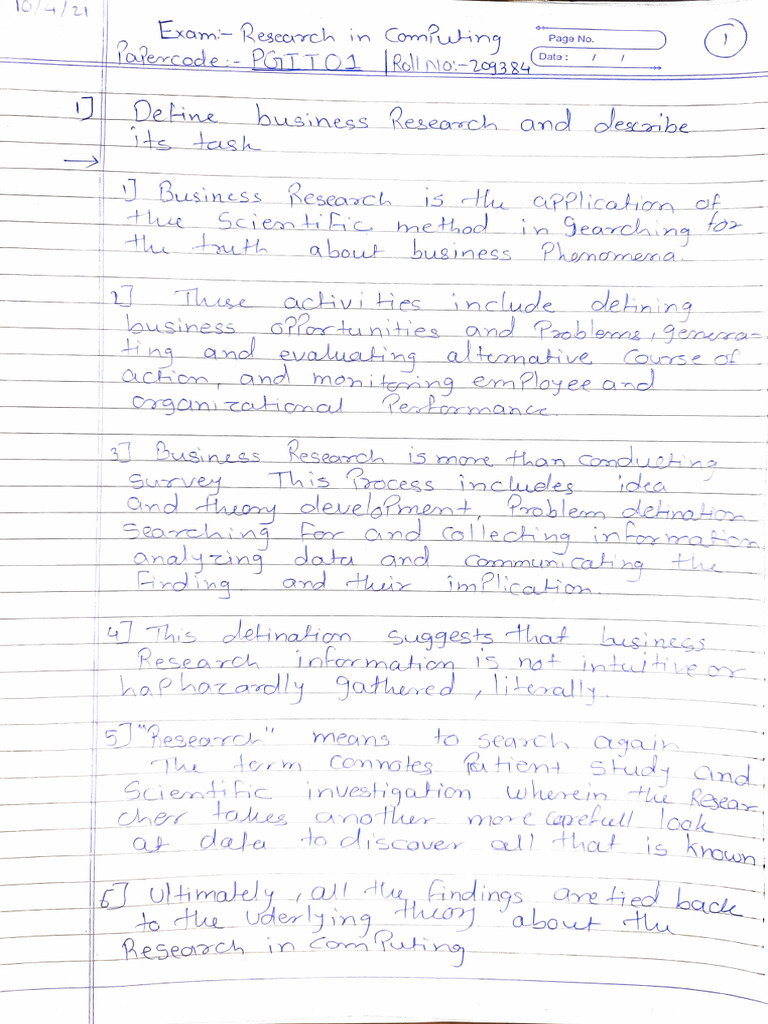 10/4/21
Exam:- Research in Computing
Page No.
1
Papercode:- PGIT01 | Roll No:- 209384
Date : / /
1] Define business Research and describe
its task
→
1] Business Research is the application of
thee Scientific method in Searching for
the truth about business Phenomena.
2] These activities include defining
business opportunities and Problems, genera-
ting and evaluating alternative course of
action, and monitering employee and
organizational Performance.
3] Business Research is more than conducting
survey This Process includes idea
and theory development, Problem defination
searching for and collecting information
analyzing data and communicating the
finding and their implication.
4] This defination suggests that business
Research information is not intuitive or
haphazardly gathered, literally.
5] "Research" means to search again
The term connotes Patient study and
Scientific investigation wherein the Resear
cher takes another more carefull look
at data to discover all that is known
6] Ultimately, all the findings are tied back
to the uderlying theory about the
Research in computing